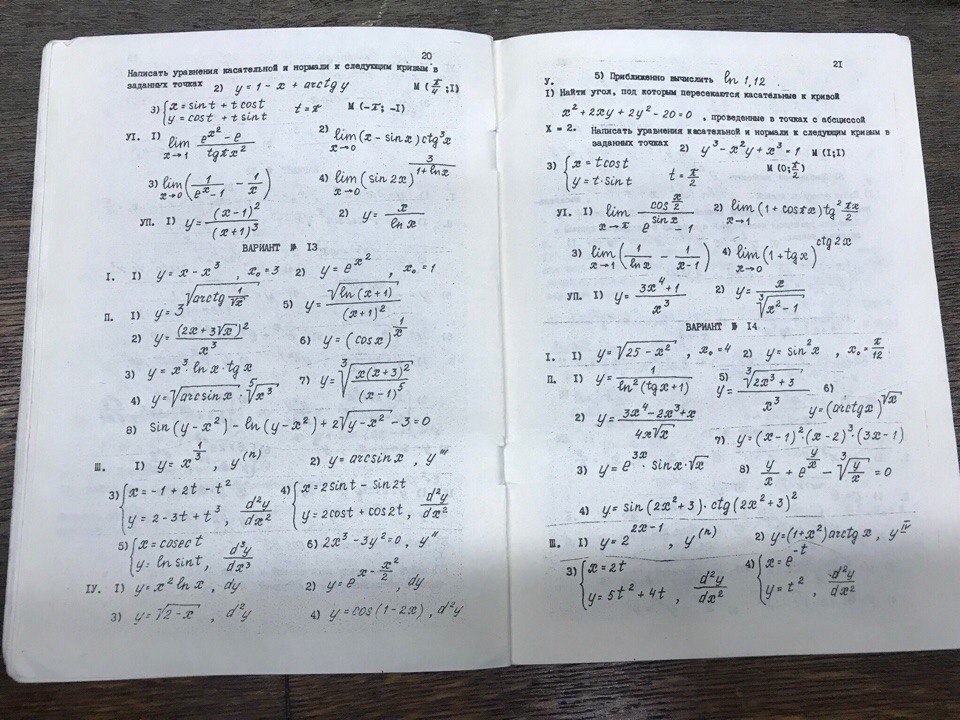 20
Написать уравнения касательной и нормали к следующим кривым в
заданных точках 2) y = 1 - x + arctg y M (π/4 ; I)
3) { x = sin t + t cost t = π M (-π; -I)
y = cost + t sint
УІ. I) lim x→1 (e^(x²) - e)/(tgπx²) 2) lim x→0 (x - sinx) ctg³x
3) lim x→0 (1/(e^x - 1) - 1/x) 4) lim x→0 (sin 2x)^(3/(1+lnx))
УП. I) y = (x-1)²/(x+1)³ 2) y = x/ln x
ВАРИАНТ № I3
I. I) y = x - x³ , x₀ = 3 2) y = e^(x²) , x₀ = 1
П. I) y = 3^√(arctg 1/√x) 5) y = √(ln(x+1))/(x+1)²
2) y = (2x + 3√x)²/x³ 6) y = (cosx)^(1/x)
3) y = x³ · ln x · tg x 7) y = ∛(x(x+3)²/(x-1)⁵)
4) y = √(arcsin x) · ⁵√(x³)
8) sin (y - x²) - ln (y - x²) + 2√(y - x²) - 3 = 0
Ш. I) y = x^(1/3) , y^(n) 2) y = arcsin x , y'''
3) { x = -1 + 2t - t² 4) { x = 2sint - sin2t
y = 2 - 3t + t³ , d²y/dx² y = 2cost + cos2t, d²y/dx²
5) { x = cosec t 6) 2x³ - 3y² = 0, y''
y = ln sint, d³y/dx³
IУ. I) y = x² ln x , dy 2) y = e^(x - x²/2) , dy
3) y = √(2-x) , d²y 4) y = cos (1-2x) , d²y
2I
У. 5) Приближенно вычислить ln 1,12
I) Найти угол, под которым пересекаются касательные к кривой
x² + 2xy + 2y² - 20 = 0 , проведенные в точках с абсциссой
X = 2. Написать уравнения касательной и нормали к следующим кривым в
заданных точках 2) y³ - x²y + x³ = 1 M (I;I)
3) { x = t cost t = π/2 M (0; π/2)
y = t · sint
УІ. I) lim x→π (cos x/2)/(e^(sinx) - 1) 2) lim x→1 (1 + cosπx) tg² πx/2
3) lim x→1 (1/lnx - 1/(x-1)) 4) lim x→0 (1 + tgx)^(ctg2x)
УП. I) y = (3x⁴ + 1)/x³ 2) y = x/∛(x² - 1)
ВАРИАНТ № I4
I. I) y = √(25 - x²) , x₀ = 4 2) y = sin²x , x₀ = π/12
П. I) y = 1/ln²(tgx+1) 5) y = ∛(2x³ + 3)/x³ 6) y = (arctg x)^√x
2) y = (3x⁴ - 2x³ + x)/(4x√x) 7) y = (x-1)² · (x-2)³ · (3x-1)
3) y = e^(3x) · sinx · √x 8) y/x + e^(y/x) - ∛(y/x) = 0
4) y = sin (2x² + 3) · ctg (2x² + 3)²
Ш. I) y = 2^(2x-1) , y^(n) 2) y = (1+x²) arctg x , y^IV
3) { x = 2t 4) { x = e^(-t)
y = 5t² + 4t , d²y/dx² y = t² , d²y/dx²